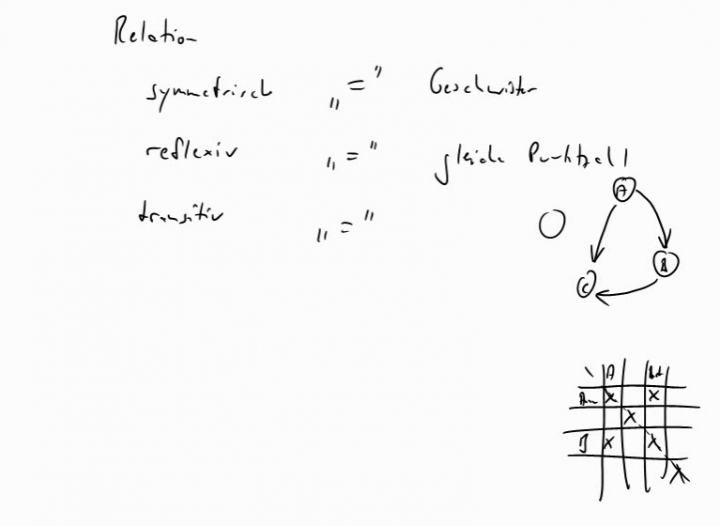 Relation
symmetrisch „=" Geschwister
reflexiv „=" gleiche Punktzahl
transitiv „=" 
A
B
C
A
X X
X
X X
X